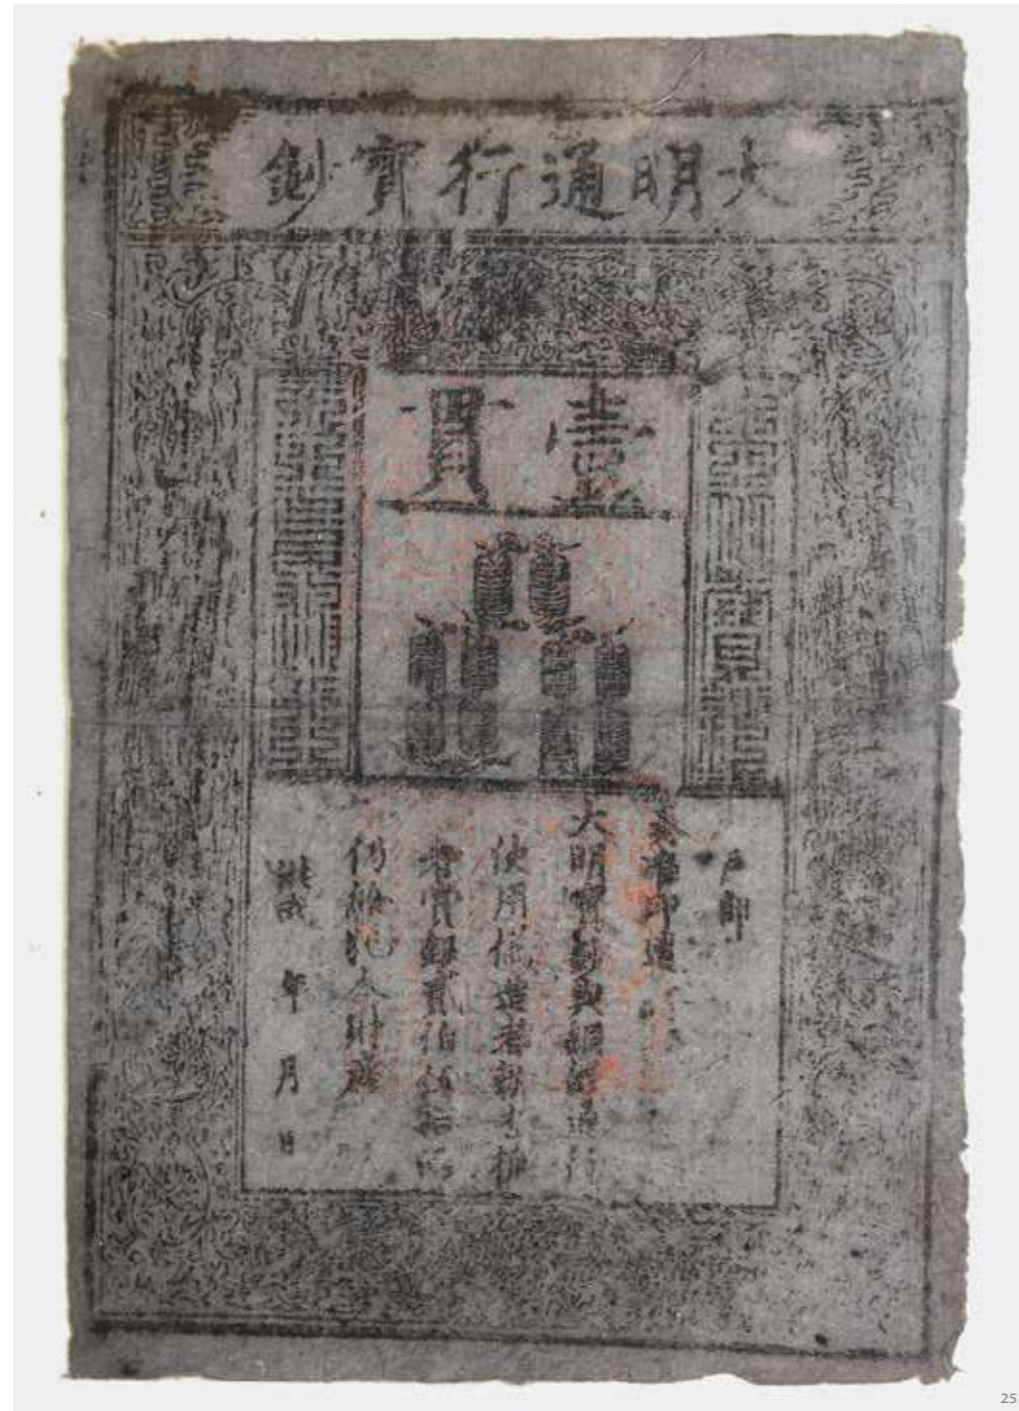 大明通行寶鈔
壹貫
戶部
奏准印造
大明寶鈔與銅錢通行
使用偽造者斬告捕
者賞銀貳伯伍拾兩
仍給犯人財產
洪武 年 月 日
25